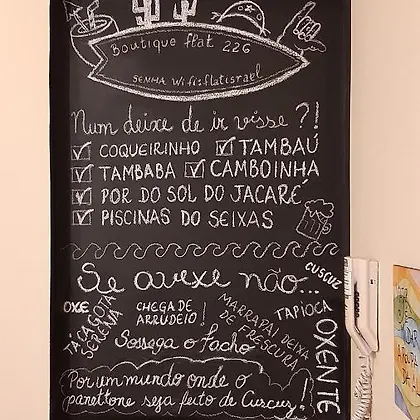 Boutique flat 226
SENHA wifi:flatisrael
Num deixe de ir visse ?!
COQUEIRINHO TAMBAÚ
TAMBABA CAMBOINHA
POR DO SOL DO JACARÉ
PISCINAS DO SEIXAS
Se avexe não...
CUSCUZ
OXE
TÁ CA GOTA SERENA
CHEGA DE ARRUDEIO!
MARRAPAI DEIXA DE FRESCURA
TAPIOCA
OXENTE
Sossega o facho
Por um mundo onde o
panettone seja feito de Cuscus!